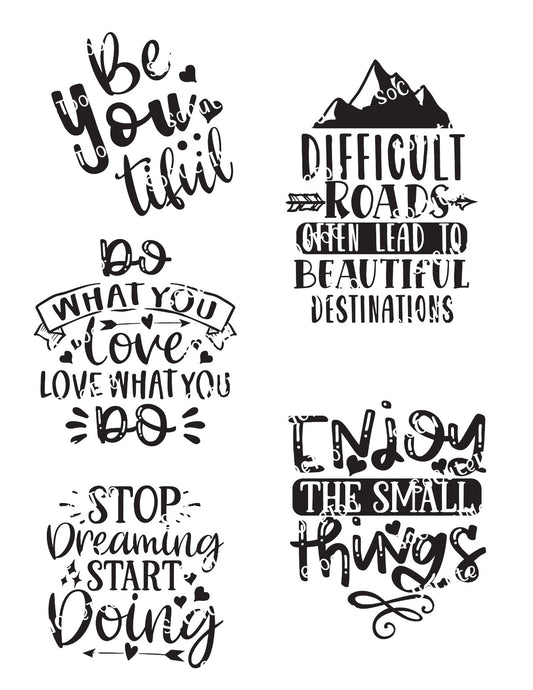 Be
you
tiful
DIFFICULT
ROADS
OFTEN LEAD TO
BEAUTIFUL
DESTINATIONS
DO
WHAT YOU
Love
LOVE WHAT YOU
DO
ENjoy
THE SMALL
things
STOP
Dreaming
START
Doing